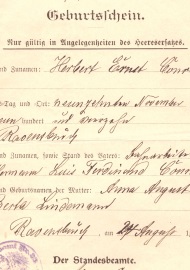 Geburtsschein.
Nur gültig in Angelegenheiten des Heeresersatzes.
nd Zunamen: Herbert Ernst Conr
-Tag und Ort: neunzehnten November
hundert und vierzehn
Ravensbuch
nd Zunamen, sowie Stand des Vaters:
Hermann Luis Ferdinand Conr
nd Geburtsnamen der Mutter: Anna August
Lindemann
Ravensbuch, den 24 August 1
Der Standesbeamte.